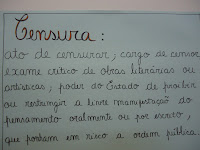 Censura:
ato de censurar; cargo de censor
exame crítico de obras literárias ou
artísticas; poder do Estado de proibir
ou restringir a livre manifestação do
pensamento oralmente ou por escrito,
que ponham em risco a ordem pública.